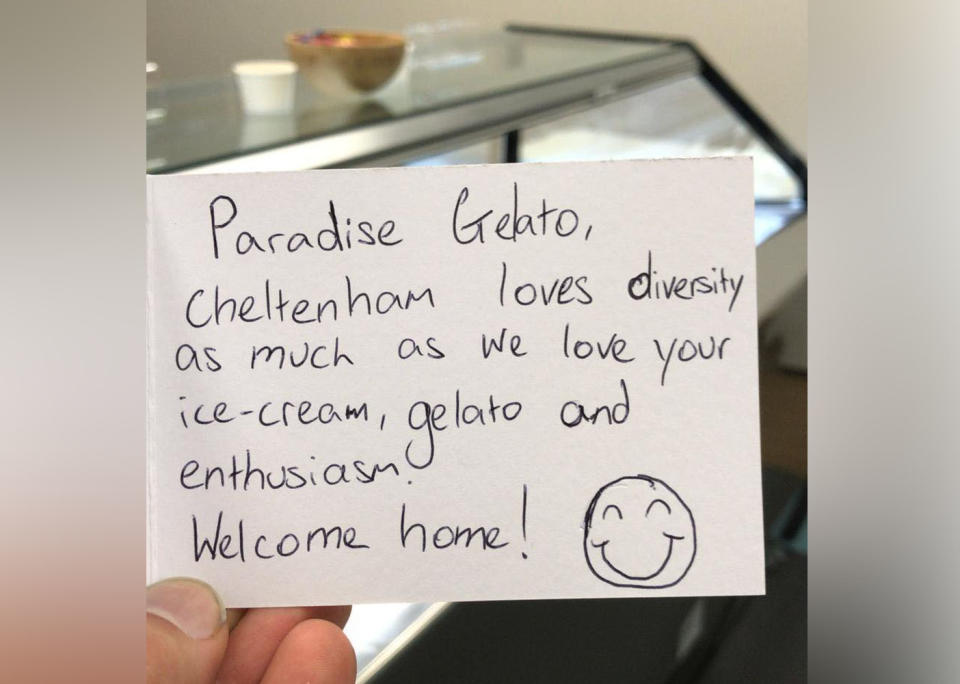 Paradise Gelato,
Cheltenham loves diversity
as much as we love your
ice-cream, gelato and
enthusiasm!
Welcome home!